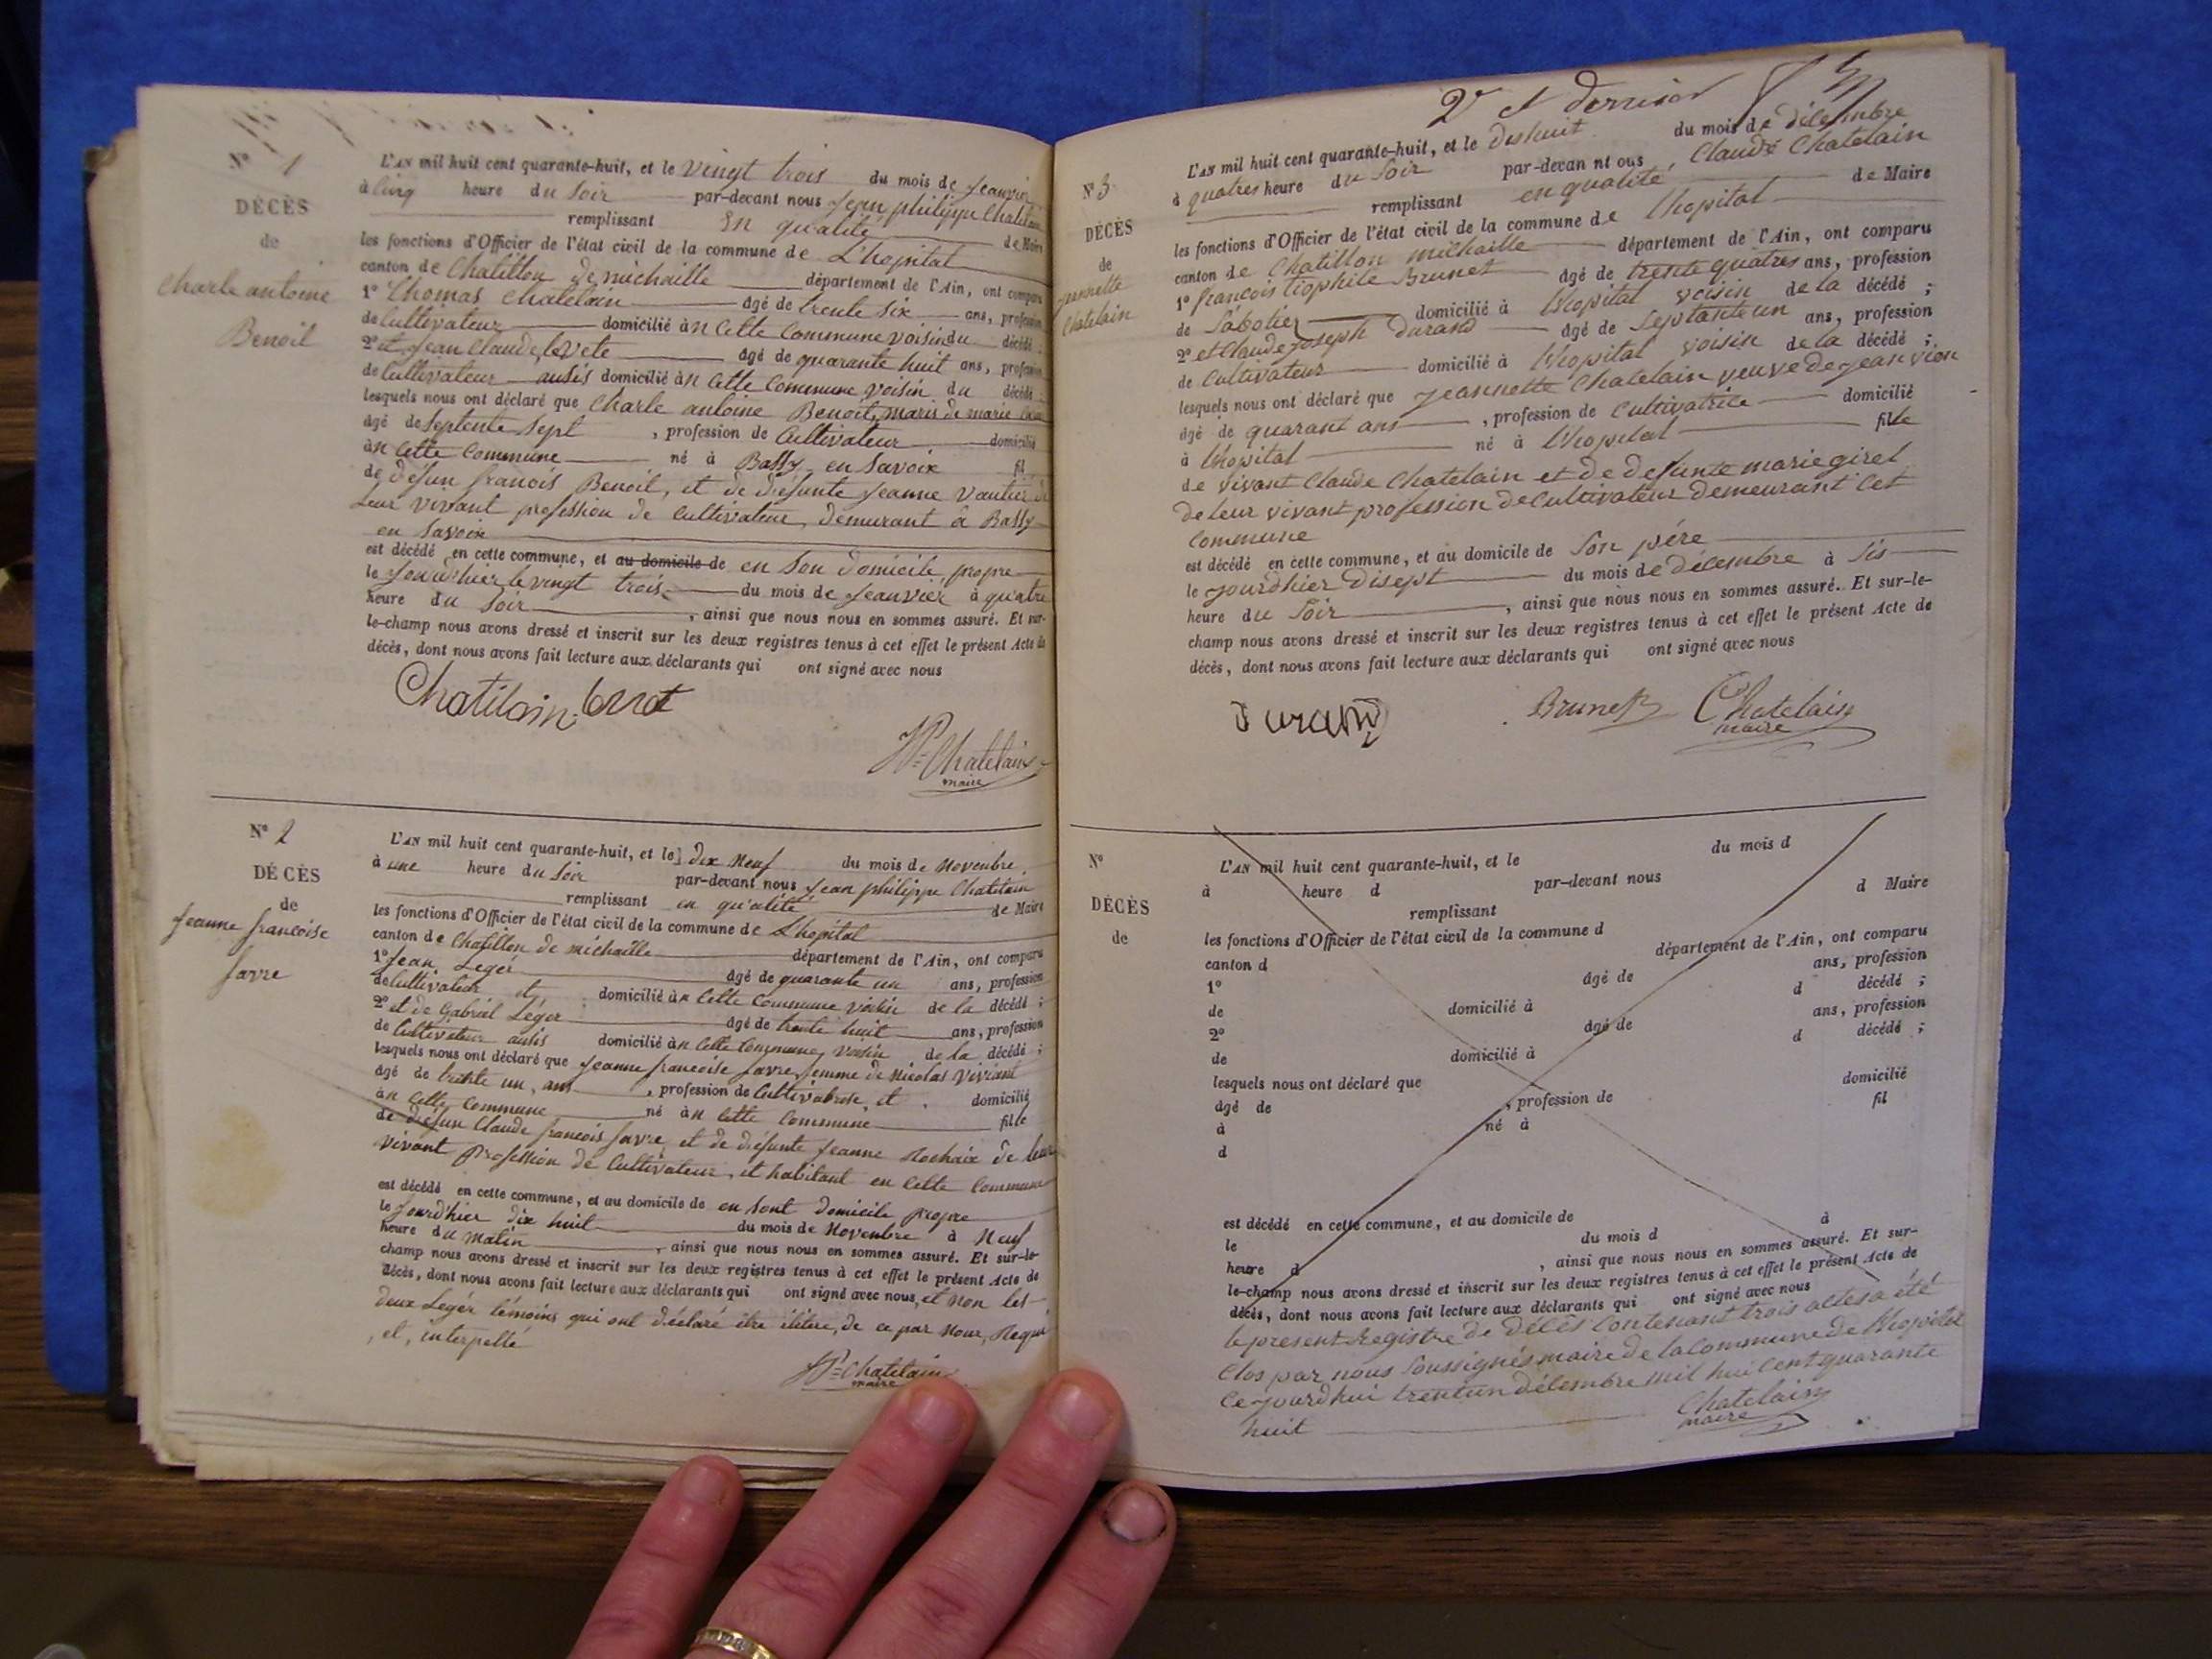 N° 1
DÉCÈS
de
Charle antoine
Benoit
L'AN mil huit cent quarante-huit, et le vingt trois du mois de Jeanvier
à cinq heure du soir par-devant nous Jean philippe Chatelain
remplissant En qualité de Maire
les fonctions d'Officier de l'état civil de la commune de L'hopital
canton de Chatillon de michaille département de l'Ain, ont comparu
1° Thomas Chatelain âgé de trente six ans, profession
de Cultivateur domicilié àn Cette Commune voisin du décédé ;
2° et Jean Claude levete âgé de quarante huit ans, profession
de Cultivateur ausis domicilié àn Cette Commune voisin du décédé ;
lesquels nous ont déclaré que Charle antoine Benoit, maris de marie
âgé de septente sept , profession de Cultivateur domicilié
àn Cette Commune né à Bassy en Savoix fil
de défun franois Benoit, et de diéfunte Jeanne Vautier de
Leur vivant profession de Cultivateur, demurant à Bassy
en Savoix
est décédé en cette commune, et au domicile de en Son Domicile propre
le Jourd'hier le vingt trois du mois de Jeanvier à quatre
heure du Soir , ainsi que nous nous en sommes assuré. Et sur-
le-champ nous avons dressé et inscrit sur les deux registres tenus à cet effet le présent Acte de
décès, dont nous avons fait lecture aux déclarants qui ont signé avec nous
Chatilain
JP Chatelain
maire
N° 2
DÉCÈS
de
Jeanne francoise
favre
L'AN mil huit cent quarante-huit, et le dix Neuf du mois de Novenbre
à une heure du Soir par-devant nous Jean philippe Chatelain
remplissant en qu'alité de Maire
les fonctions d'Officier de l'état civil de la commune de L'hopital
canton de Chatillon de michaille département de l'Ain, ont comparu
1° Jean Legér âgé de quarante un ans, profession
de Cultivateur et domicilié àn Cette Commune voisin de la décédé ;
2° et de Gabriel Léger âgé de trente huit ans, profession
de Cultivateur ausis domicilié àn Cette Commune, voisin de la décédé ;
lesquels nous ont déclaré que Jeanne francoise favre, femme de Nicolas Viviant
âgé de trante un ans , profession de Cultivatrise, et domicilié
àn Cette Commune né àn Cette Commune fille
de diéfun Claude francois favre, et de diéfunte Jeanne Rochaix de leur
vivant Profession de Cultivateur, et habitant en Cette Commune
est décédé en cette commune, et au domicile de en Sont Domicile propre
le Jourd'hier dix huit du mois de Novenbre à Neuf
heure du Matin , ainsi que nous nous en sommes assuré. Et sur-le-
champ nous avons dressé et inscrit sur les deux registres tenus à cet effet le présent Acte de
décès, dont nous avons fait lecture aux déclarants qui ont signé avec nous, et Non les
deux Legér témoins qui ont déclaré être iliterе, de ce par Nous, Requi
, et, interpellé
JP Chatelain
maire
2e et dernier
N° 3.
DÉCÈS
de
jeannette
Chatelain
L'AN mil huit cent quarante-huit, et le Dishuit du mois de décembre
à quatres heure du Soir par-devan nt ous Claude Chatelain
remplissant en qualité de Maire
les fonctions d'Officier de l'état civil de la commune de Lhopital
canton de Chatillon michaille département de l'Ain, ont comparu
1° françois tiophile Brunet âgé de trente quatres ans, profession
de Sabotier domicilié à Lhopital voisin de la décédé ;
2° et Claude joseph Durand âgé de septante un ans, profession
de Cultivateur domicilié à Lhopital voisin de la décédé ;
lesquels nous ont déclaré que jeannette Chatelain veuve de jean vion
âgé de quarant ans , profession de Cultivatrice domicilié
à Lhopital né à Lhopital fille
de vivant Claude Chatelain et de defunte marie girel
de leur vivant profession de Cultivateur demeurant Cet
Commune
est décédé en cette commune, et au domicile de Son pére
le jourdhier disept du mois de décembre à sis
heure du Soir , ainsi que nous nous en sommes assuré. Et sur-le-
champ nous avons dressé et inscrit sur les deux registres tenus à cet effet le présent Acte de
décès, dont nous avons fait lecture aux déclarants qui ont signé avec nous
Durand Brunet Chatelain
maire
N°
DÉCÈS
de
L'AN mil huit cent quarante-huit, et le du mois d
à heure d par-devant nous
remplissant d Maire
les fonctions d'Officier de l'état civil de la commune d
canton d département de l'Ain, ont comparu
1° âgé de ans, profession
de domicilié à d décédé ;
2° âgé de ans, profession
de domicilié à d décédé ;
lesquels nous ont déclaré que
âgé de , profession de domicilié
à né à fil
d
est décédé en cette commune, et au domicile de
le du mois d à
heure d , ainsi que nous nous en sommes assuré. Et sur-
le-champ nous avons dressé et inscrit sur les deux registres tenus à cet effet le présent Acte de
décès, dont nous avons fait lecture aux déclarants qui ont signé avec nous
le present Registre de Décés Contenant trois actes a été
Clos par nous Soussignés maire de la Commune de Lhopital
Ce jourdhui trentun décembre mil huit cent quarante
huit
Chatelain
maire